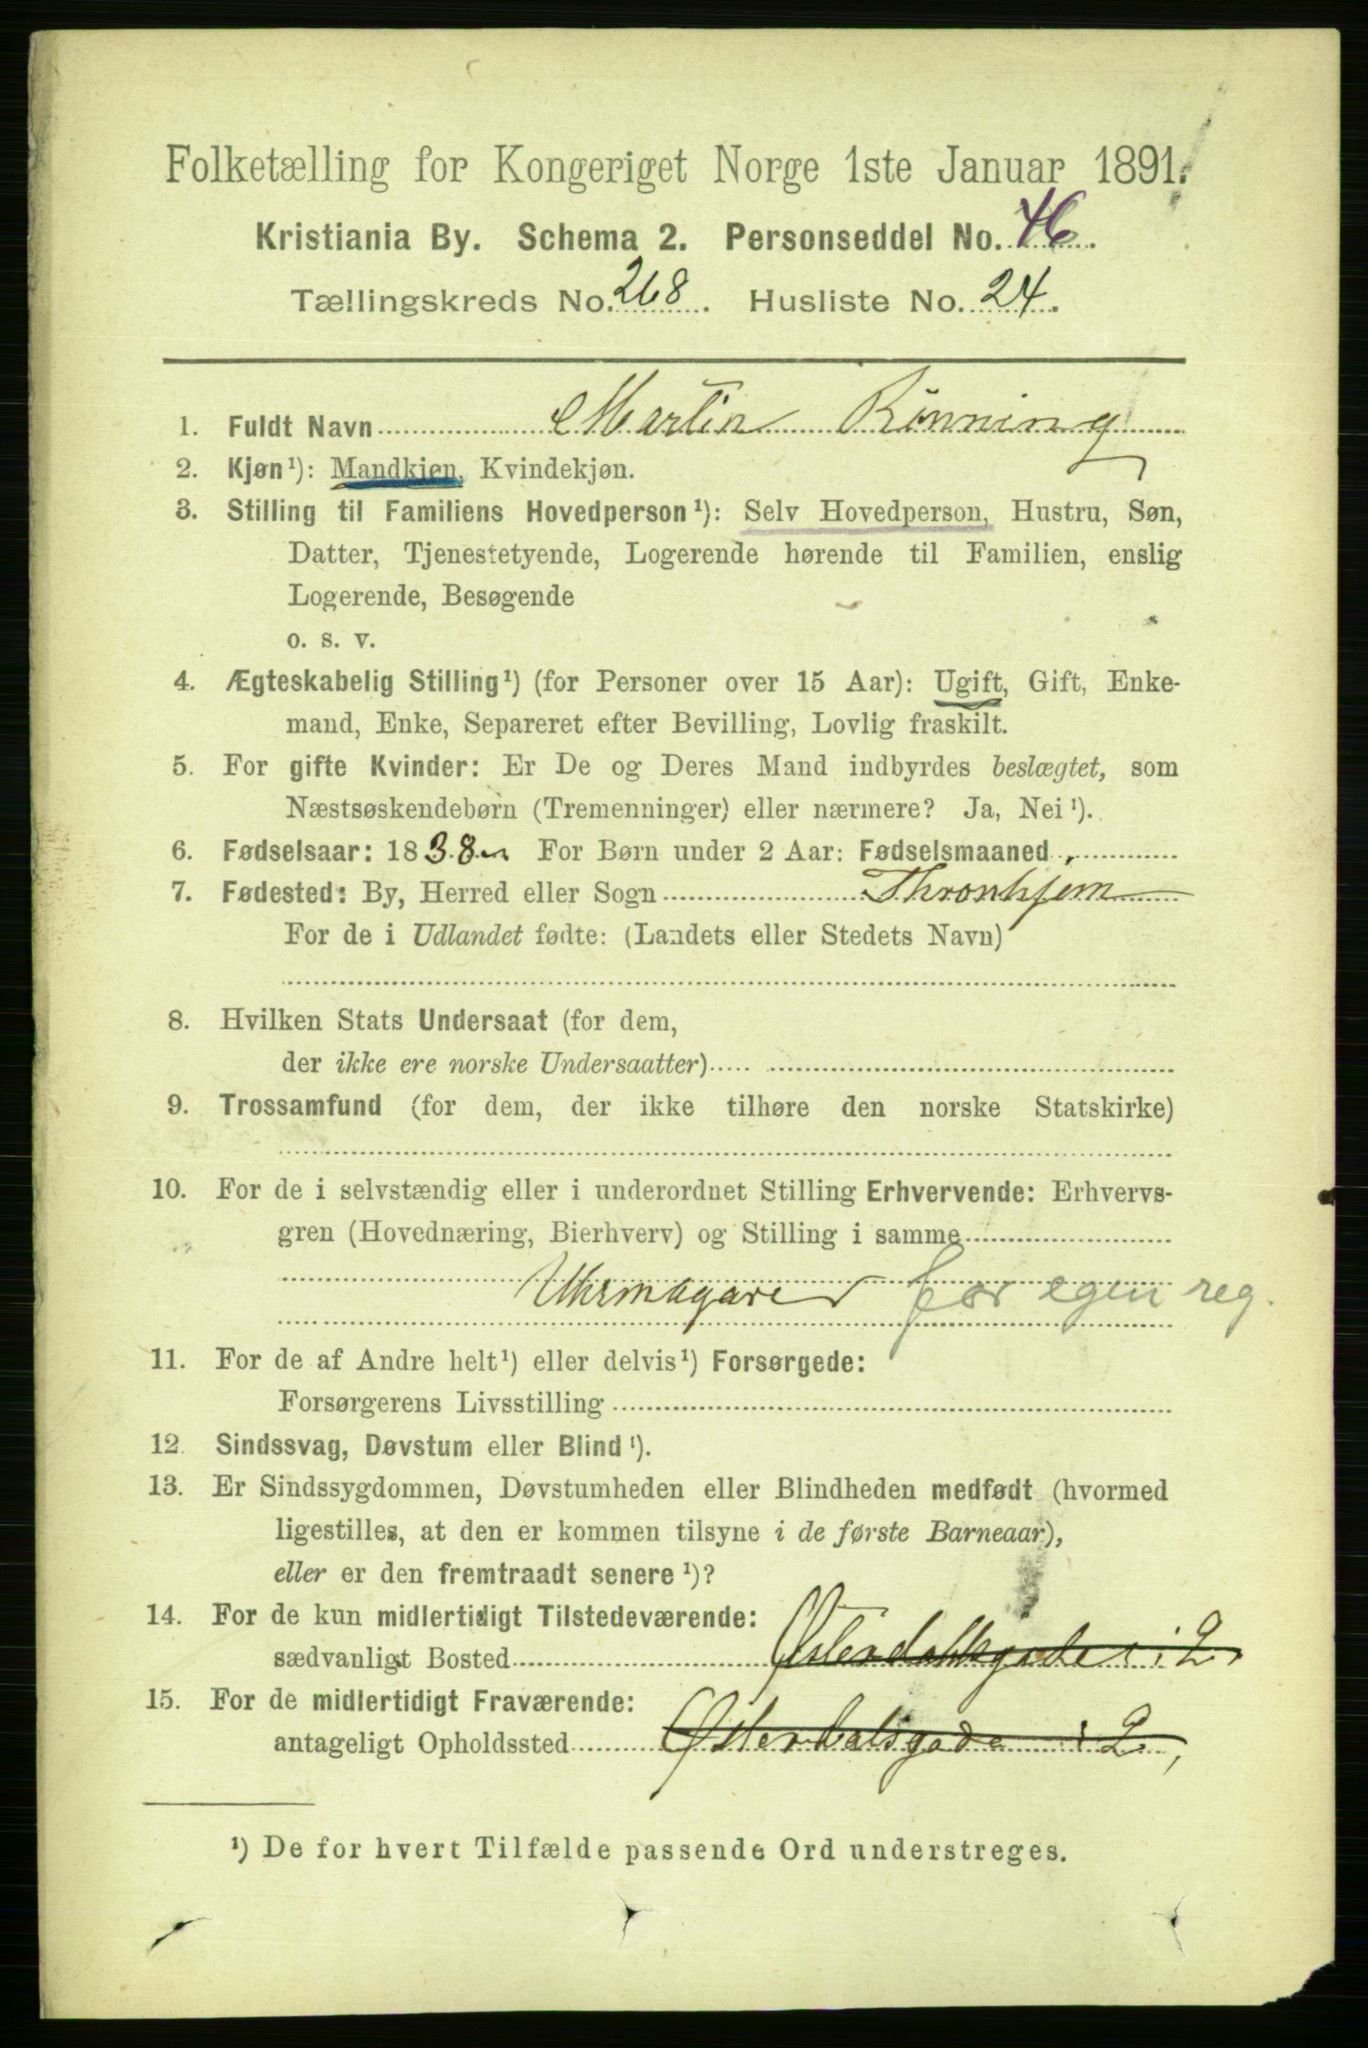 Folketælling for Kongeriget Norge 1ste Januar 1891.
Kristiania By. Schema 2. Personseddel No. 46.
Tællingskreds No. 268. Husliste No. 24.
1. Fuldt Navn Martin Rönning
2. Kjøn¹): Mandkjøn, Kvindekjøn.
3. Stilling til Familiens Hovedperson¹): Selv Hovedperson, Hustru, Søn,
Datter, Tjenestetyende, Logerende hørende til Familien, enslig
Logerende, Besøgende
o. s. v.
4. Ægteskabelig Stilling¹) (for Personer over 15 Aar): Ugift, Gift, Enke-
mand, Enke, Separeret efter Bevilling, Lovlig fraskilt.
5. For gifte Kvinder: Er De og Deres Mand indbyrdes beslægtet, som
Næstsøskendebørn (Tremenninger) eller nærmere? Ja, Nei¹).
6. Fødselsaar: 1838 For Børn under 2 Aar: Fødselsmaaned
7. Fødested: By, Herred eller Sogn Thronhjem
For de i Udlandet fødte: (Landets eller Stedets Navn)
8. Hvilken Stats Undersaat (for dem,
der ikke ere norske Undersaatter)
9. Trossamfund (for dem, der ikke tilhøre den norske Statskirke)
10. For de i selvstændig eller i underordnet Stilling Erhvervende: Erhvervs-
gren (Hovednæring, Bierhverv) og Stilling i samme
Uhrmagare for egen reg.
11. For de af Andre helt¹) eller delvis¹) Forsørgede:
Forsørgerens Livsstilling
12. Sindssvag, Døvstum eller Blind¹).
13. Er Sindssygdommen, Døvstumheden eller Blindheden medfødt (hvormed
ligestilles, at den er kommen tilsyne i de første Barneaar),
eller er den fremtraadt senere¹)?
14. For de kun midlertidigt Tilstedeværende:
sædvanligt Bosted Østerdalsgade i 2.
15. For de midlertidigt Fraværende:
antageligt Opholdssted Østerdalsgade i 2,
¹) De for hvert Tilfælde passende Ord understreges.